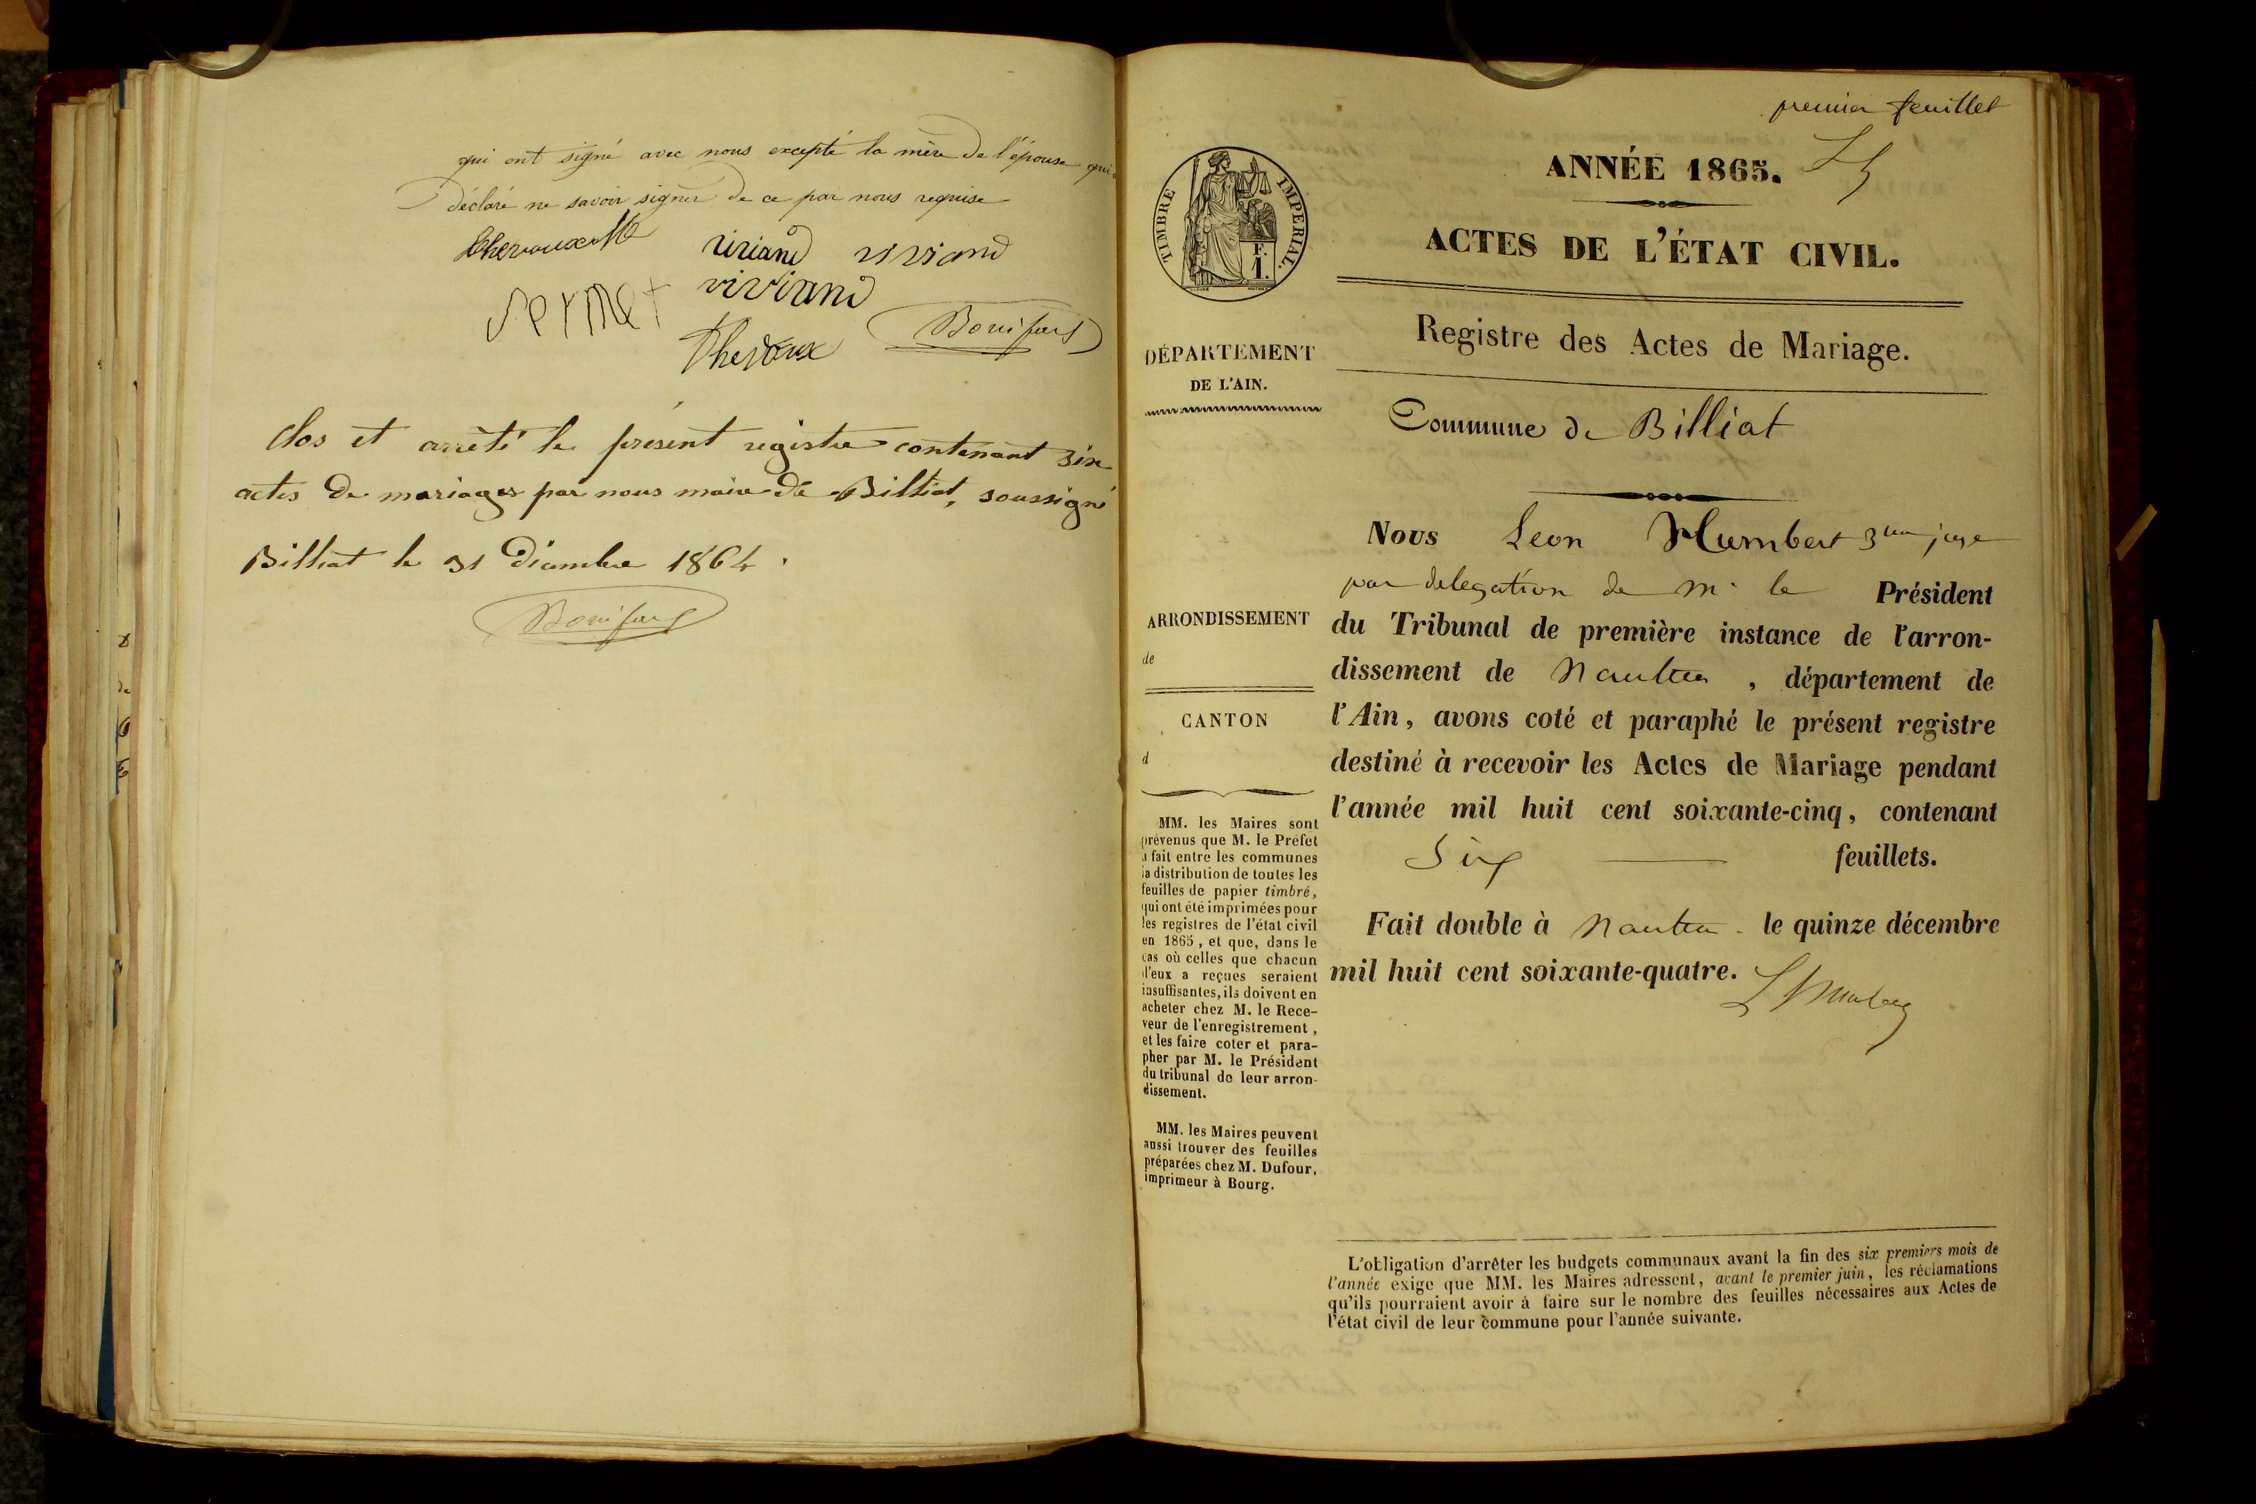 qui ont signé avec nous excepté la mère de l'épouse qui a
déclaré ne savoir signer de ce par nous requise
viviand viviand
viviand
sermet
Thevoux
clos et arrêté le présent registre contenant six
actes de mariages par nous maire de Billiat, soussigné
Billiat le 31 Décembre 1864.
premier feuillet
TIMBRE IMPERIAL.
F.
1.
DÉPARTEMENT
DE L'AIN.
ARRONDISSEMENT
de
CANTON
d
MM. les Maires sont
prévenus que M. le Préfet
a fait entre les communes
la distribution de toutes les
feuilles de papier timbré,
qui ont été imprimées pour
les registres de l'état civil
en 1865, et que, dans le
cas où celles que chacun
d'eux a reçues seraient
insuffisantes, ils doivent en
acheter chez M. le Rece-
veur de l'enregistrement,
et les faire coter et para-
pher par M. le Président
du tribunal de leur arron-
dissement.
MM. les Maires peuvent
aussi trouver des feuilles
préparées chez M. Dufour,
imprimeur à Bourg.
ANNÉE 1865.
ACTES DE L'ÉTAT CIVIL.
Registre des Actes de Mariage.
Commune de Billiat
Nous Leon Humbert juge
par delegation de Mr le Président
du Tribunal de première instance de l'arron-
dissement de Nantua, département de
l'Ain, avons coté et paraphé le présent registre
destiné à recevoir les Actes de Mariage pendant
l'année mil huit cent soixante-cinq, contenant
Six feuillets.
Fait double à Nantua le quinze décembre
mil huit cent soixante-quatre.
L Humbert
L'obligation d'arrêter les budgets communaux avant la fin des six premiers mois de
l'année exige que MM. les Maires adressent, avant le premier juin, les réclamations
qu'ils pourraient avoir à faire sur le nombre des feuilles nécessaires aux Actes de
l'état civil de leur commune pour l'année suivante.